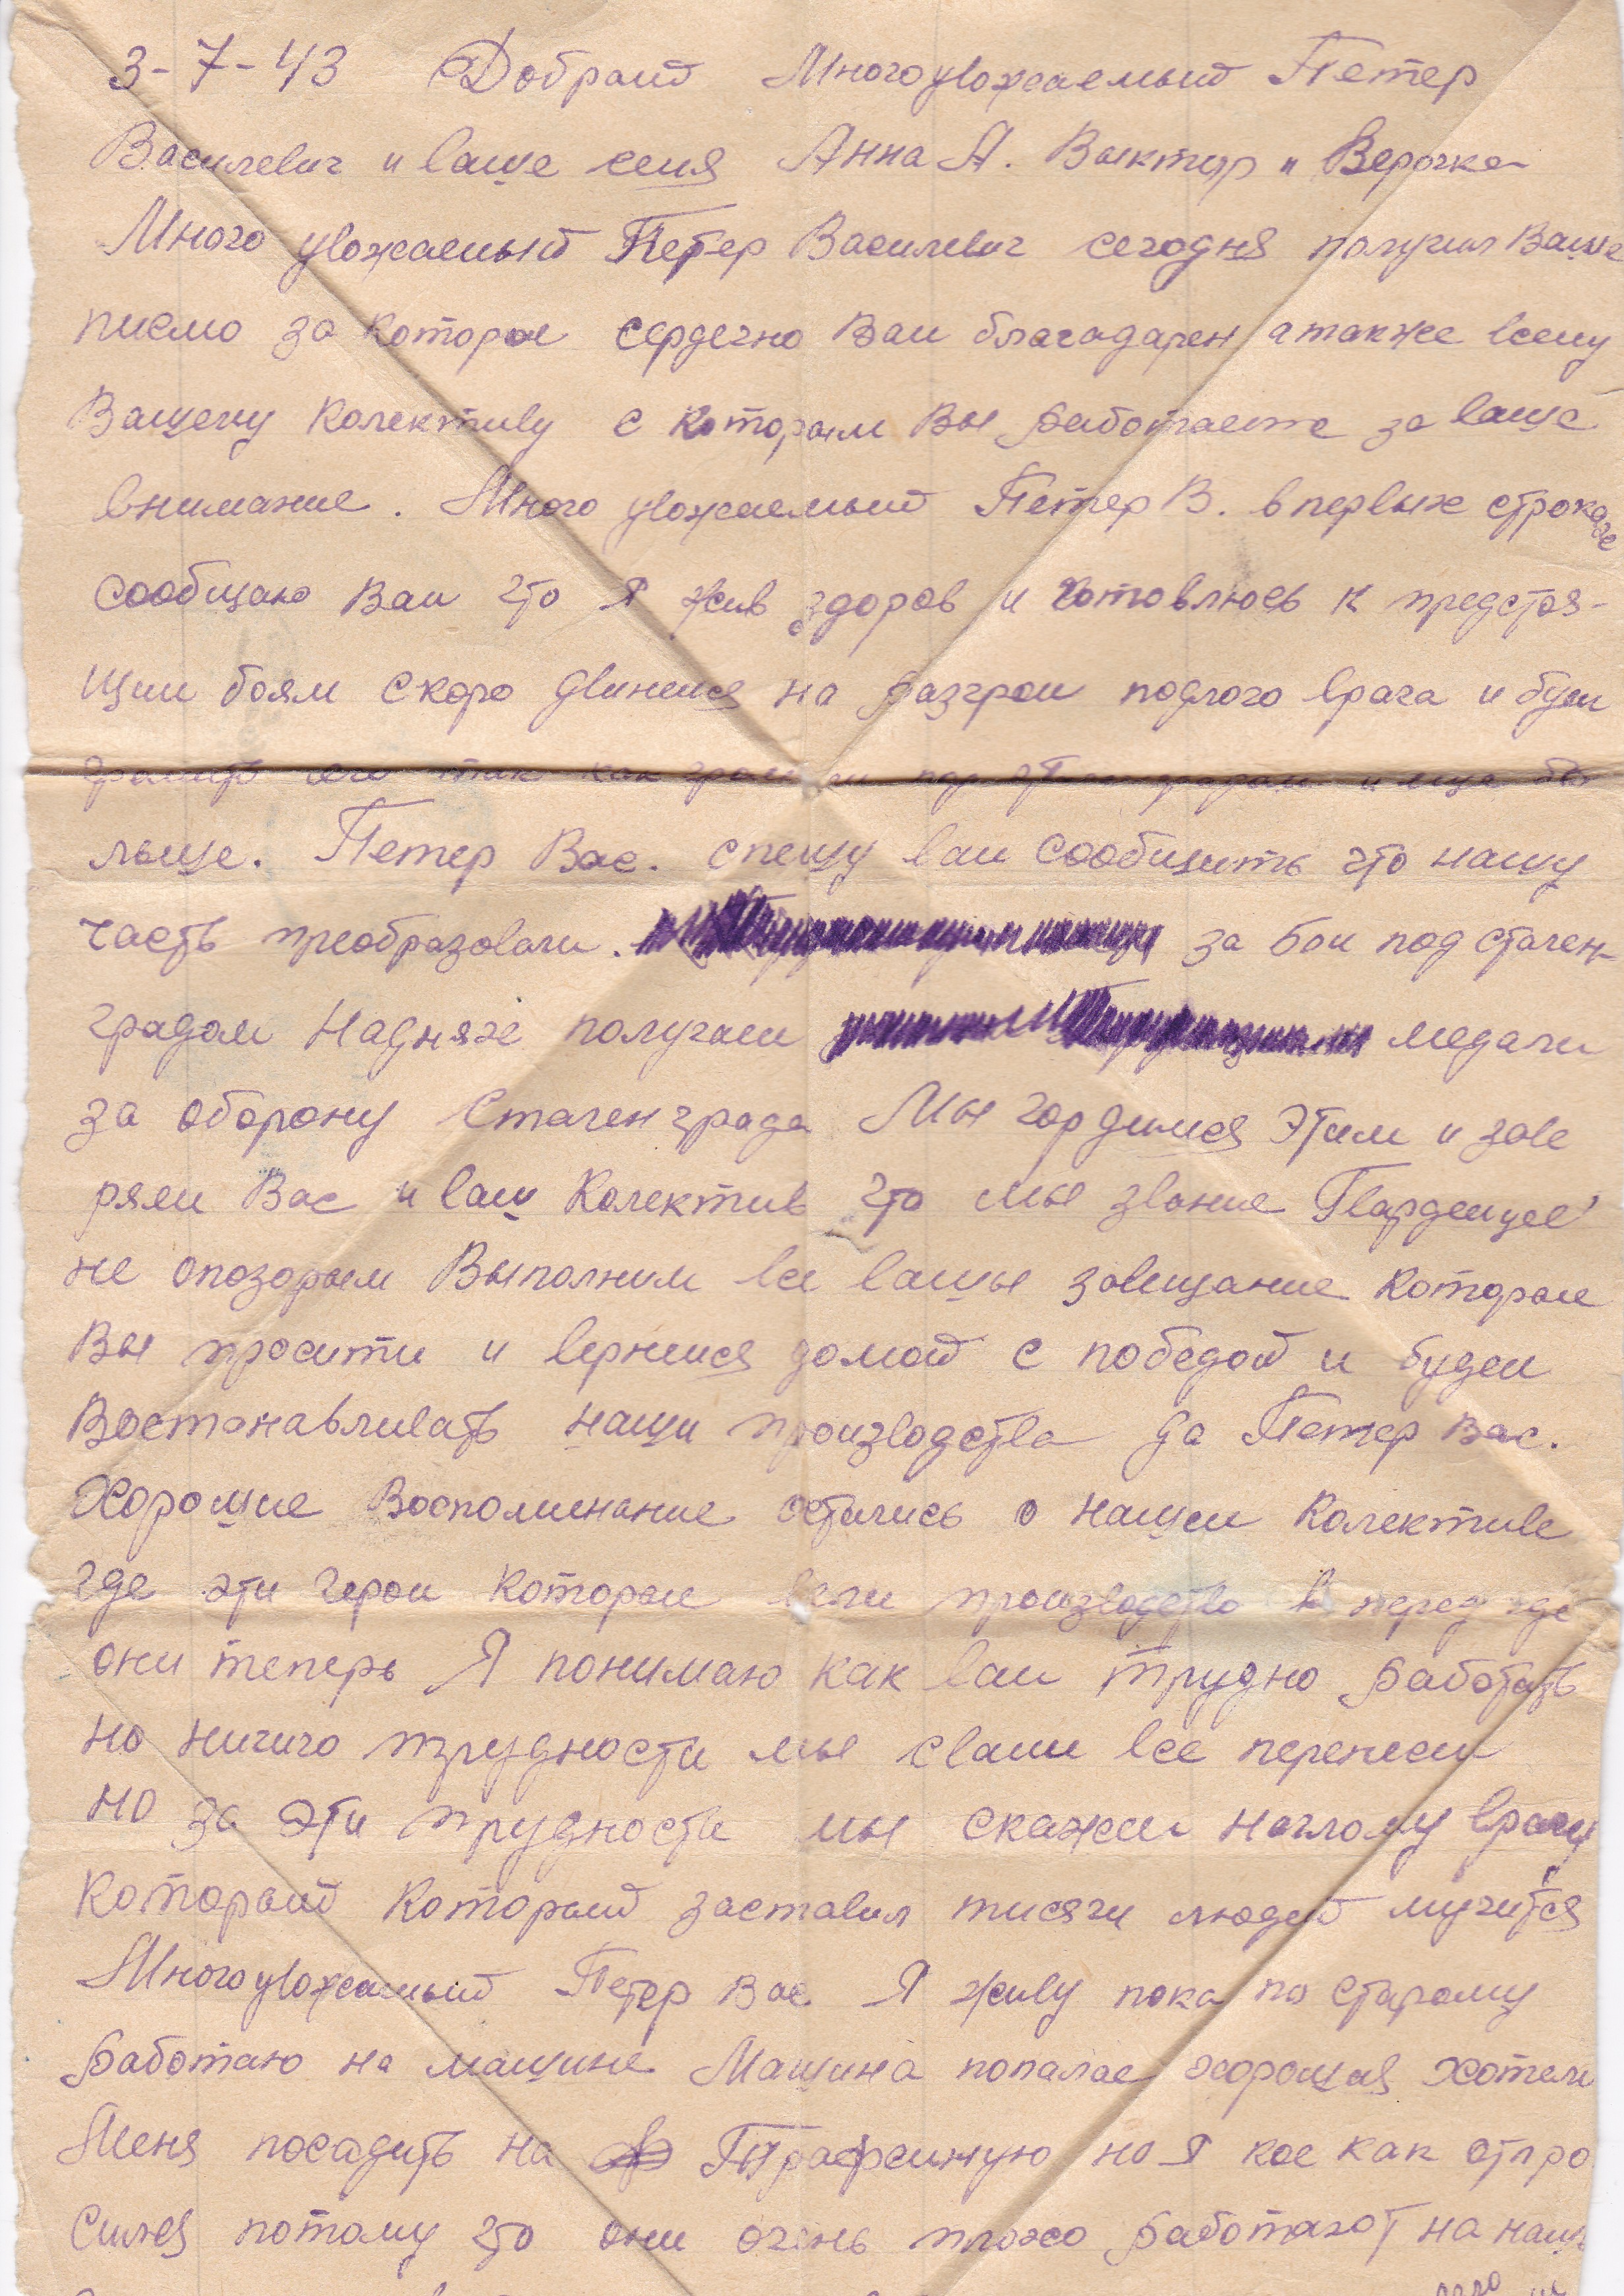 3-7-43 Добрый Многоуважаемый Петер
Василевич и ваше семя Анна А. Выктор и Верочка
Много уважаемый Петер Василевич сегодня получил Ваше
писмо за которое сердечно Вам благадарен а также всему
Вашему Колективу с которым Вы работаете за ваше
внимание. Много уважаемый Петер В. в первых строках
сообщаю Вам что Я жив здоров и готовлюсь к предстоя-
щим боям скоро двинемся на разгром подлого врага и буем
громить его так как громили под и еще бо
льше. Петер Вас. спешу вам сообщить что нашу
часть преобразовали. за бои под стален-
градом На днях получаем медали
за оборону Сталенграда Мы гордимся этим и заве
ряем Вас и ваш Колектив что мы звание Гвардейцев
не опозорым Выполним все вашы завещание которые
Вы просити и вернемся домой с победой и будем
Востонавливать наши производства да Петер Вас.
Хорошие Воспоминание остались о нашем Колективе
где эти герои которые вели производство в перед где
они теперь Я понимаю как вам трудно работать
но ничиго трудности мы свами все перенесем
но за эти трудности мы скажем наглому врагу
который который заставил тисячи людей мучится
Многоуважаемый Петер Вас. Я живу пока по старому
работаю на машине Машина попалас хорошая хотели
Меня посадить на Трафейную но Я кое как отпро
сился потому что они очень плохо работают на наш